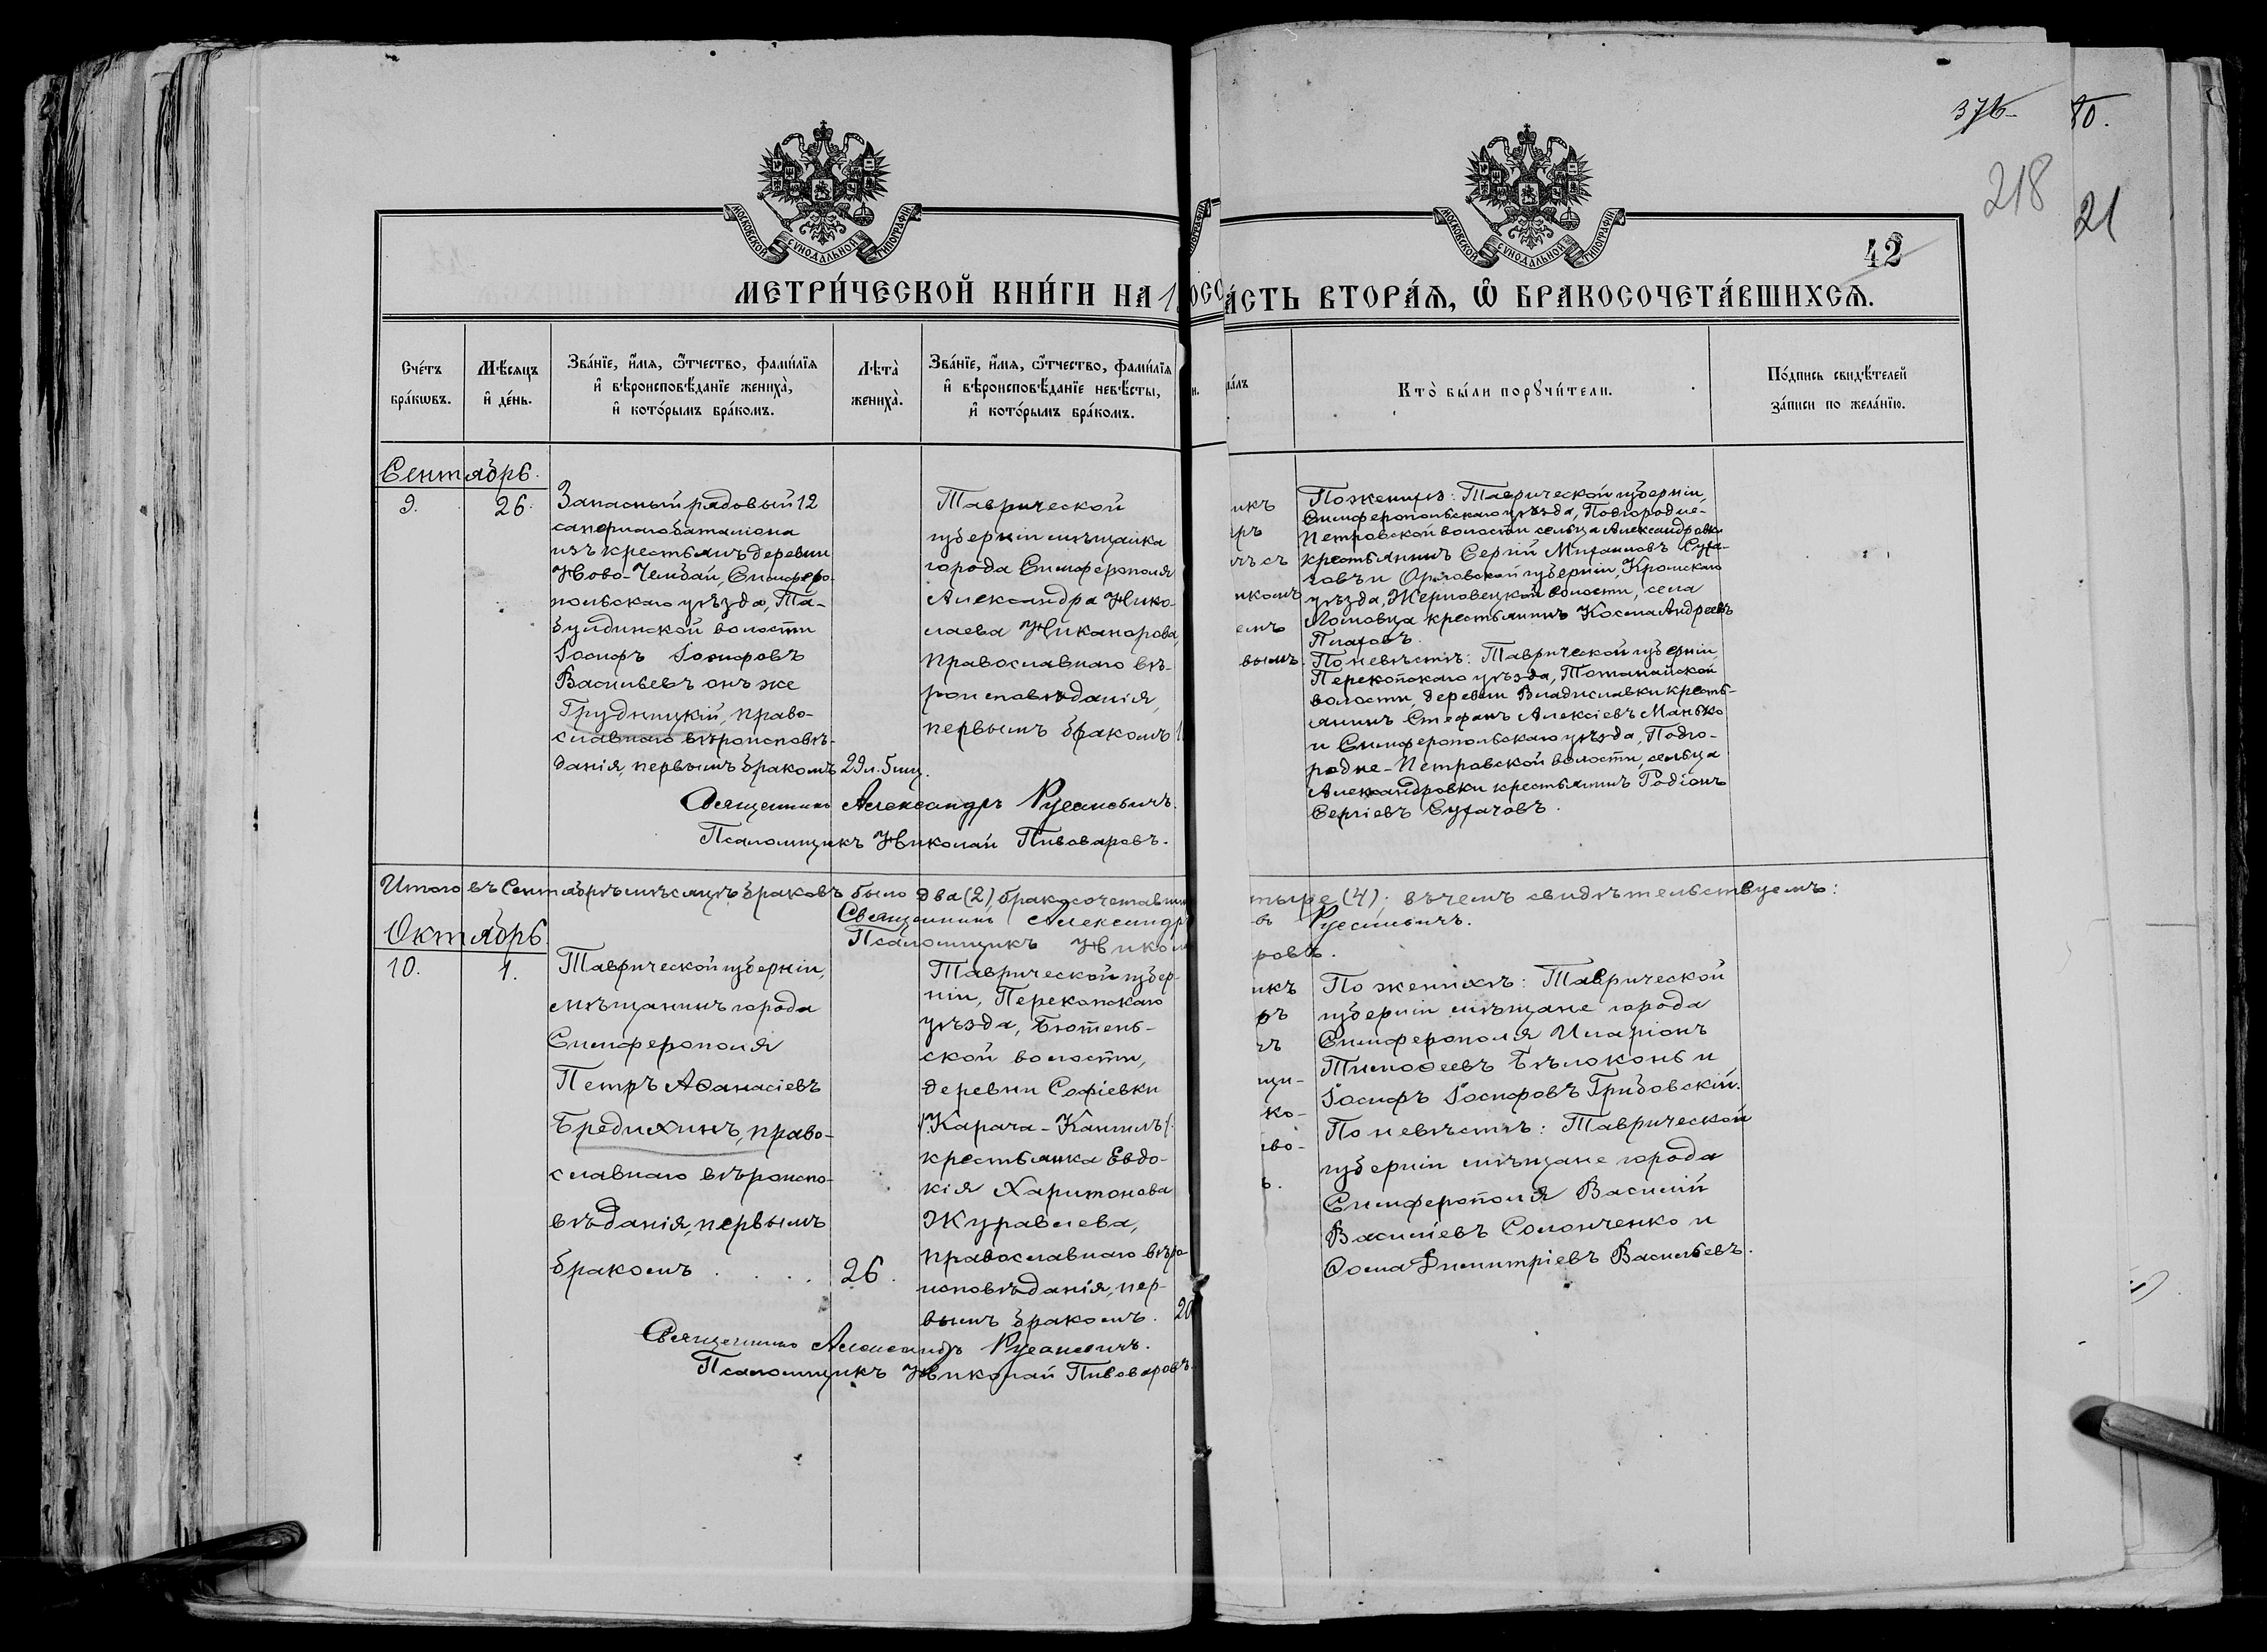 376
80.
218
21
МОСКОВСКОЙ СѴНОДАЛЬНОЙ ТИПОГРАФІИ
МОСКОВСКОЙ СѴНОДАЛЬНОЙ ТИПОГРАФІИ
42
МЕТРИ́ЧЕСКОЙ КНИ́ГИ НА 1
А́СТЬ ВТОРА́Я, Ѡ҆ БРАКОСОЧЕТА́ВШИХСЯ.
Сче́тъ бра́кѡвъ.
Мѣ́сяцъ и҆ де́нь.
Зва́нїе, и҆́мя, ѻ҆́тчество, фамилїя и҆ вѣроисповѣ́данїе жениха̀, и҆ кото́рымъ бра́комъ.
Лѣта̀ жениха̀.
Зва́нїе, и҆́мя, ѻ҆́тчество, фами́лїя и҆ вѣроисповѣ́данїе невѣ́сты, и҆ кото́рымъ бра́комъ.
Кто̀ бы́ли порꙋчи́тели.
По́дпись свидѣ́телей за́писи по жела́нїю.
Сентябрь.
9.
26.
Запасный рядовый 12
сапернаго баталіона
изъ крестьянъ деревни
Ново-Чембай, Симферо-
польскаго уѣзда, Та-
булдинской волости
Іосифъ Іосифовъ
Васильевъ онъ же
Грудницкій, право-
славнаго вѣроисповѣ-
данія, первымъ бракомъ
29 л. 5 мц.
Таврической
губерніи мѣщанка
города Симферополя
Александра Нико-
лаева Никанорова,
православнаго вѣ-
роисповѣданія,
первымъ бракомъ
икъ
ръ
чъ съ
икомъ
емъ
вымъ.
По женихѣ: Таврической губерніи,
Симферопольскаго уѣзда, Подгородне-
Петровской волости сельца Александровки
крестьянинъ Сергій Михаиловъ Суха-
човъ и Орловской губерніи, Кромскаго
уѣзда, Жерновецкой волости, села
Ломовца крестьянинъ Косма Андреевъ
По невѣстѣ: Таврической губерніи,
Перекопскаго уѣзда, Тотанайской
волости, деревни Владиславки кресть-
янинъ Стефанъ Алексіевъ Манько
и Симферопольскаго уѣзда, Подго-
родне-Петровской волости, сельца
Александровки крестьянинъ Родіонъ
Сергіевъ Сухачовъ.
Священникъ Александръ Русаневичъ.
Псаломщикъ Николай Пивоваровъ.
Итого въ Сентябрѣ мѣсяцѣ браковъ было два (2), бракосочетавши
тыре (4); въ чемъ свидѣтельствуемъ:
Священникъ Александръ
въ Русаневичъ.
Псаломщикъ Никол
ровъ.
Октябрь.
10.
1.
Таврической губерніи,
мѣщанинъ города
Симферополя
Петръ Аѳанасіевъ
Бредихинъ, право-
славнаго вѣроиспо-
вѣданія, первымъ
бракомъ . . . .
26.
Таврической губер-
ніи, Перекопскаго
уѣзда, Бютень-
ской волости,
деревни Софіевки
/:Карача-Кангилъ:/
крестьянка Евдо-
кія Харитонова
Журавлева,
православнаго вѣро-
исповѣданія, пер-
вымъ бракомъ.
20
икъ
ръ
чъ
щи-
ко-
иво-
ъ.
По женихѣ: Таврической
губерніи мѣщане города
Симферополя Иларіонъ
Тимоѳеевъ Бѣлоконь и
Іосифъ Іосифовъ Грибовскій.
По невѣстѣ: Таврической
губерніи мѣщане города
Симферополя Василій
Василіевъ Солонченко и
Ѳома Димитріевъ Васильевъ.
Священникъ Александръ Русаневичъ.
Псаломщикъ Николай Пивоваровъ.